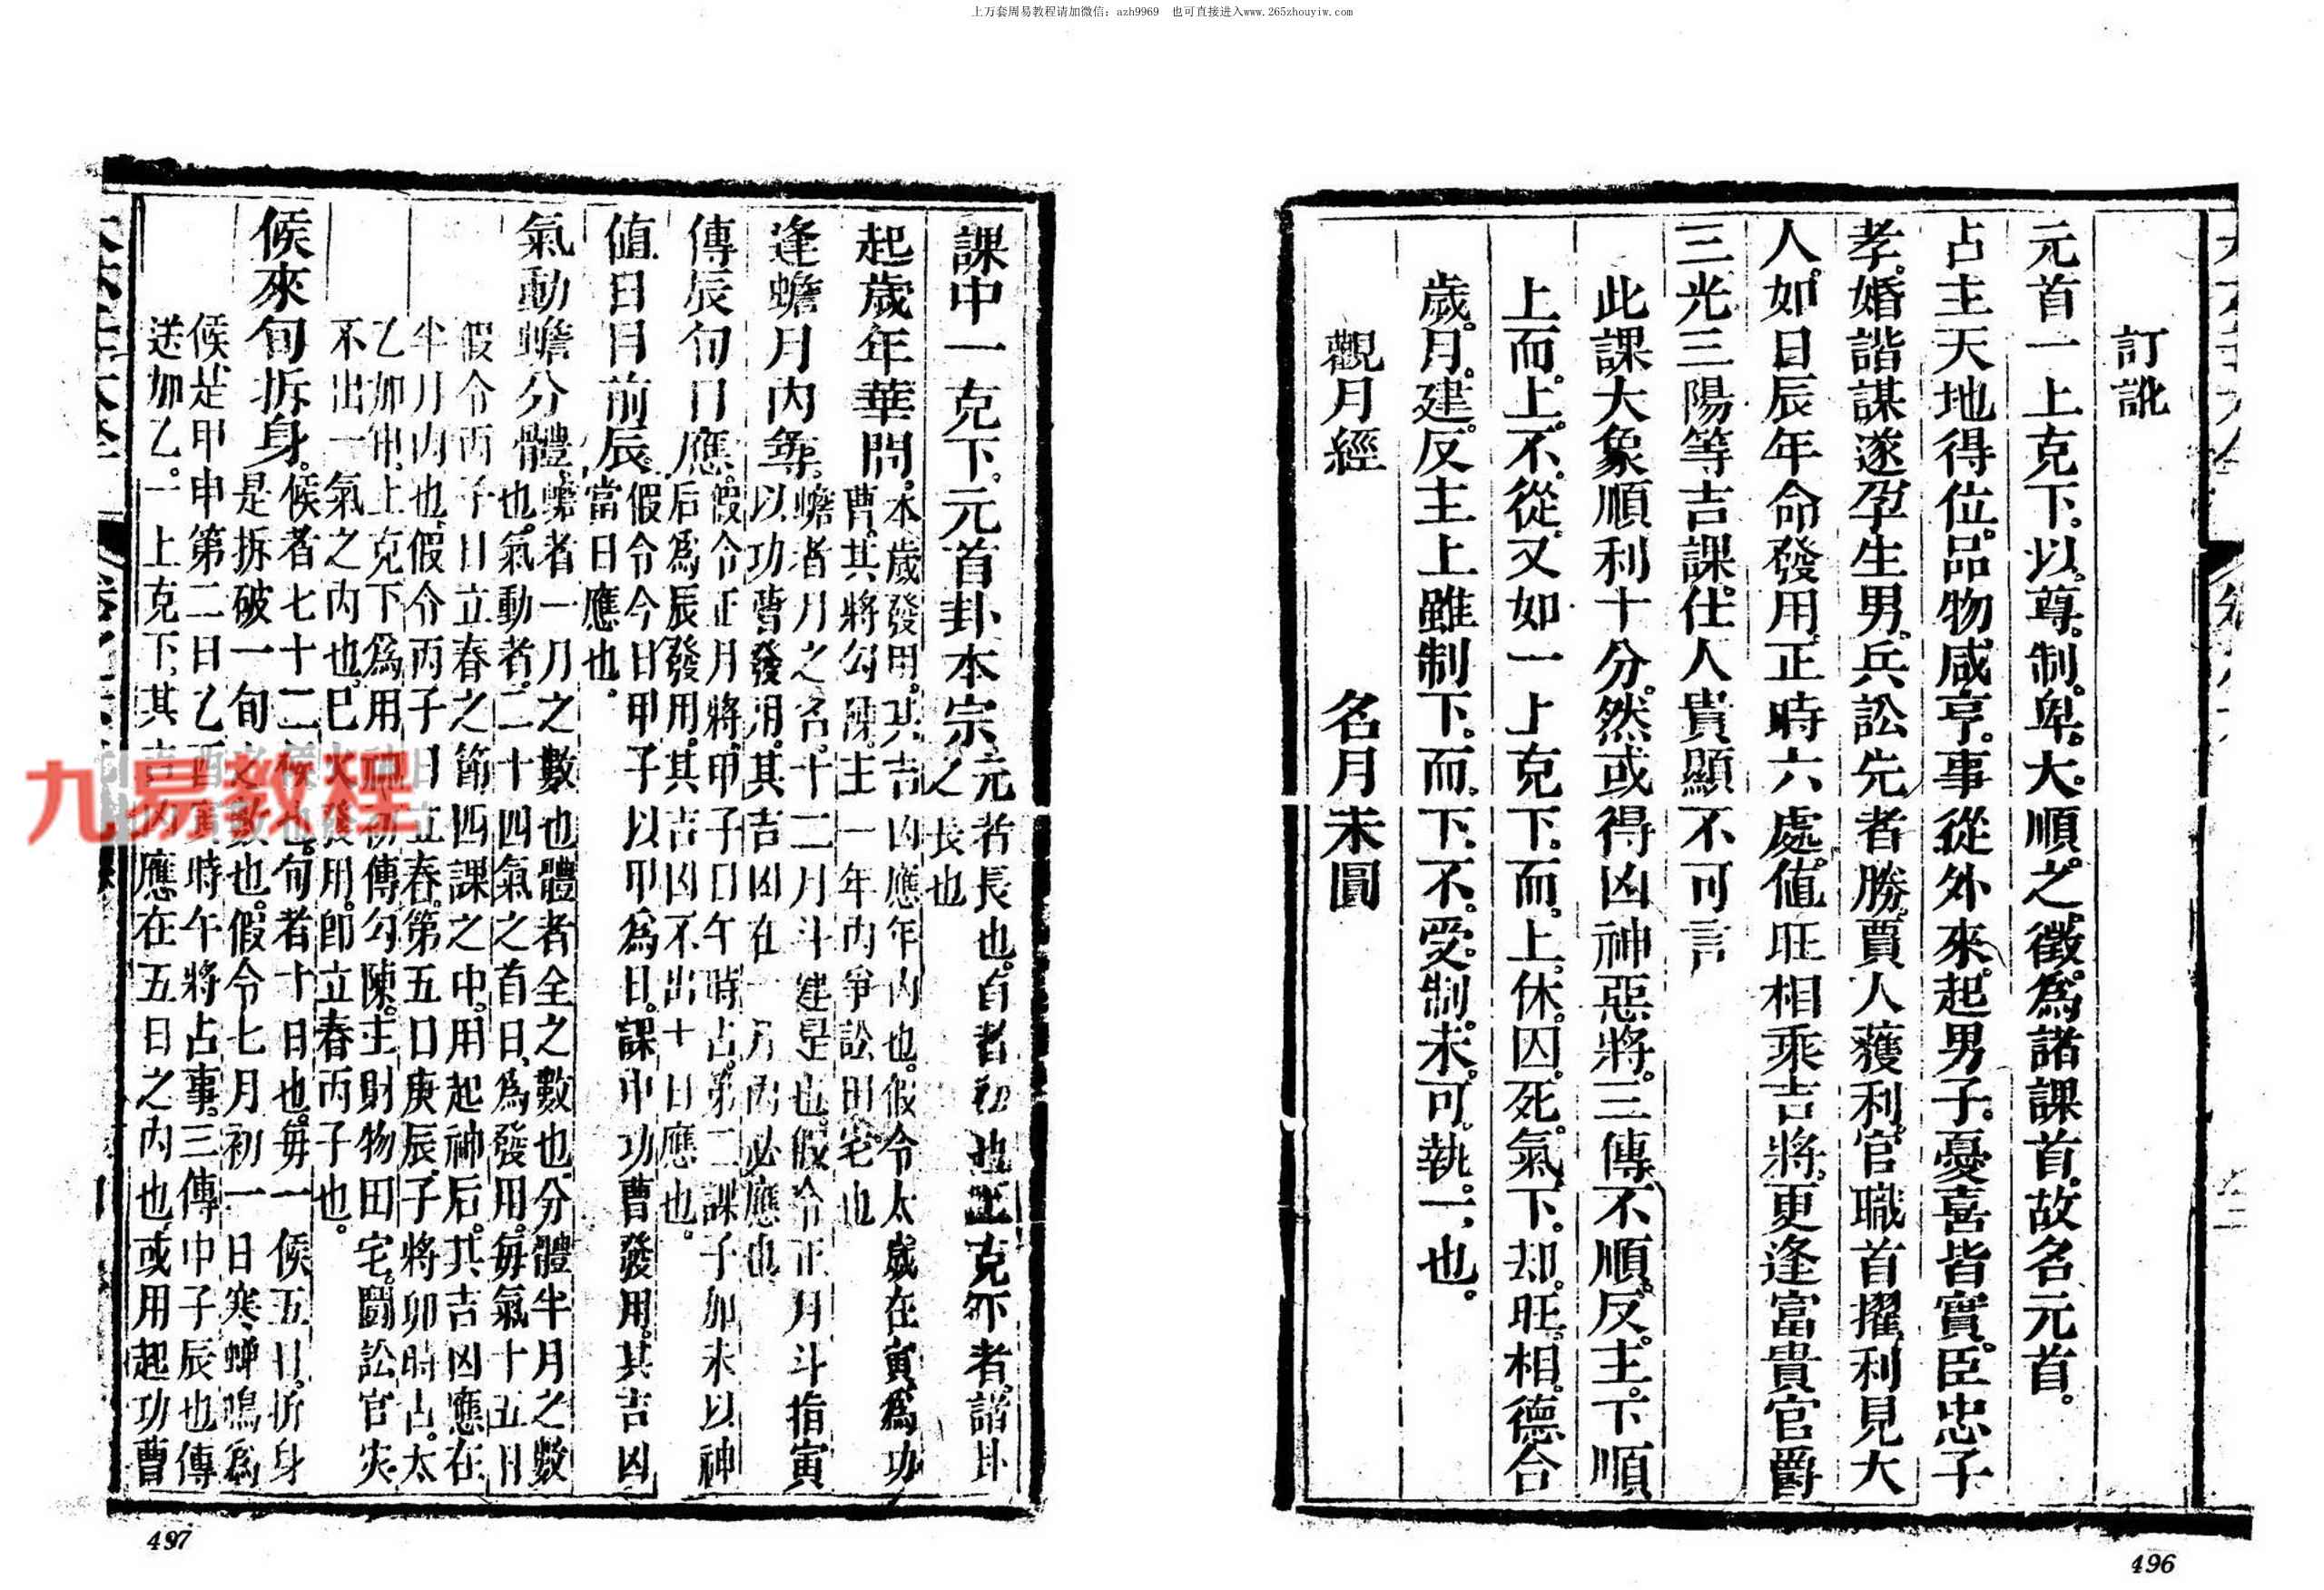 上万套周易教程请加微信：azh9969 也可直接进入www.265zhouyiw.com
訂訛
元首一上克下。以。尊。制。卑。大。順。之。徵。爲諸課首。故名元首。
占主天地得位。品物咸亨。事從外來。起男子。憂喜皆實。臣忠子
孝。婚諧謀遂孕生男。兵訟先者勝。賈人獲利。官職首擢。利見大
人。如日辰年命發用正時六處。値旺相乘吉將。更逢富貴官爵
三光三陽等吉課。仕人貴顯不可言
此課大象順利十分。然或得凶神惡將。三傳不順。反。主。下順
上而。上。不。從。又如一上克下。而。上。休。囚。死。氣。下。却。旺。相。德合
歲。月。建。反主上雖制下。而。下。不。受。制。未。可。執。一。也。
觀月經 名月未圓
496
課中一克下。元首卦本宗元者長也。首者初也上克下者。諸卦
之長也
起歲年華問。本歲發用。其吉凶應年內也。假令太歲在寅爲功
曹。其將勾陳。主一年內爭訟田宅也
逢蟾月內尋。蟾者月之名。十二月斗建是也。假令正月斗指寅
以功曹發用。其吉凶在一月內必應也
傳辰旬日應。假令正月將甲子日午時占。第二課子加未以神
后爲辰發用。其吉凶不出十日應也。
值日目前辰。假令今日甲子以甲爲日。課中功曹發用。其吉凶
當日應也。
氣動蟾分體。蟾者一月之數也體者全之數也。分體半月之數
也。氣動者。二十四氣之首日。爲發用。每氣十五日
假令丙子日立春之節四課之中。用起神后。其吉凶應在
半月內也。假令丙子日立春。第五日庚辰。子將卯時占。太
乙加申。上克下爲用神初傳勾陳。主財物田宅。鬬訟官災
不出一氣之內也。巳火發用。卽立春丙子也。
候來旬拆身。候者七十二候也。旬者十日也。每一候五日。折身
是拆破一旬之數也。假令七月初一日寒蟬鳴爲
候。是甲申第二日乙酉寅時午將占事。三傳申子辰也傳
送加乙。一上克下。其吉凶應在五日之內也。或用起功曹
497
九易教程